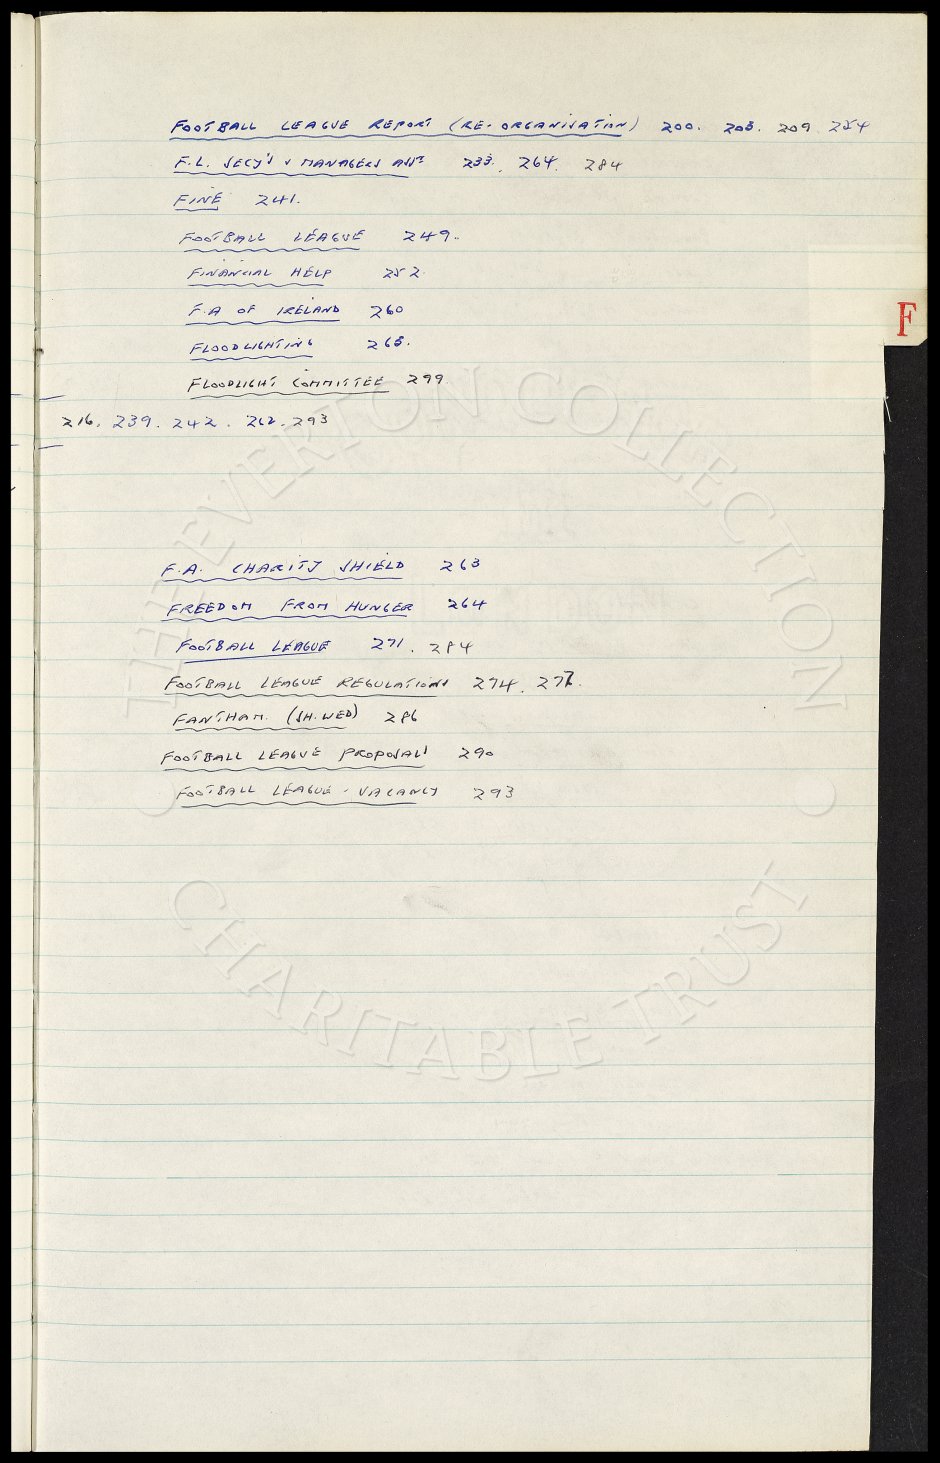 FOOTBALL LEAGUE REPORT (RE-ORGANISATION) 200. 203. 209 254
F.L. SECY'S & MANAGERS ASSN 233. 264. 284
FINE 241.
FOOTBALL LEAGUE 249.
FINANCIAL HELP 252.
F.A OF IRELAND 260
F
FLOODLIGHTING 263.
FLOODLIGHT COMMITTEE 299
216. 239. 242. 262. 293
F.A. CHARITY SHIELD 263
FREEDOM FROM HUNGER 264
FOOTBALL LEAGUE 271. 284
FOOTBALL LEAGUE REGULATIONS 274. 277.
FANTHAM. (SH.WED) 286
FOOTBALL LEAGUE PROPOSALS 290
FOOTBALL LEAGUE - VACANCY 293
THE EVERTON COLLECTION
CHARITABLE TRUST